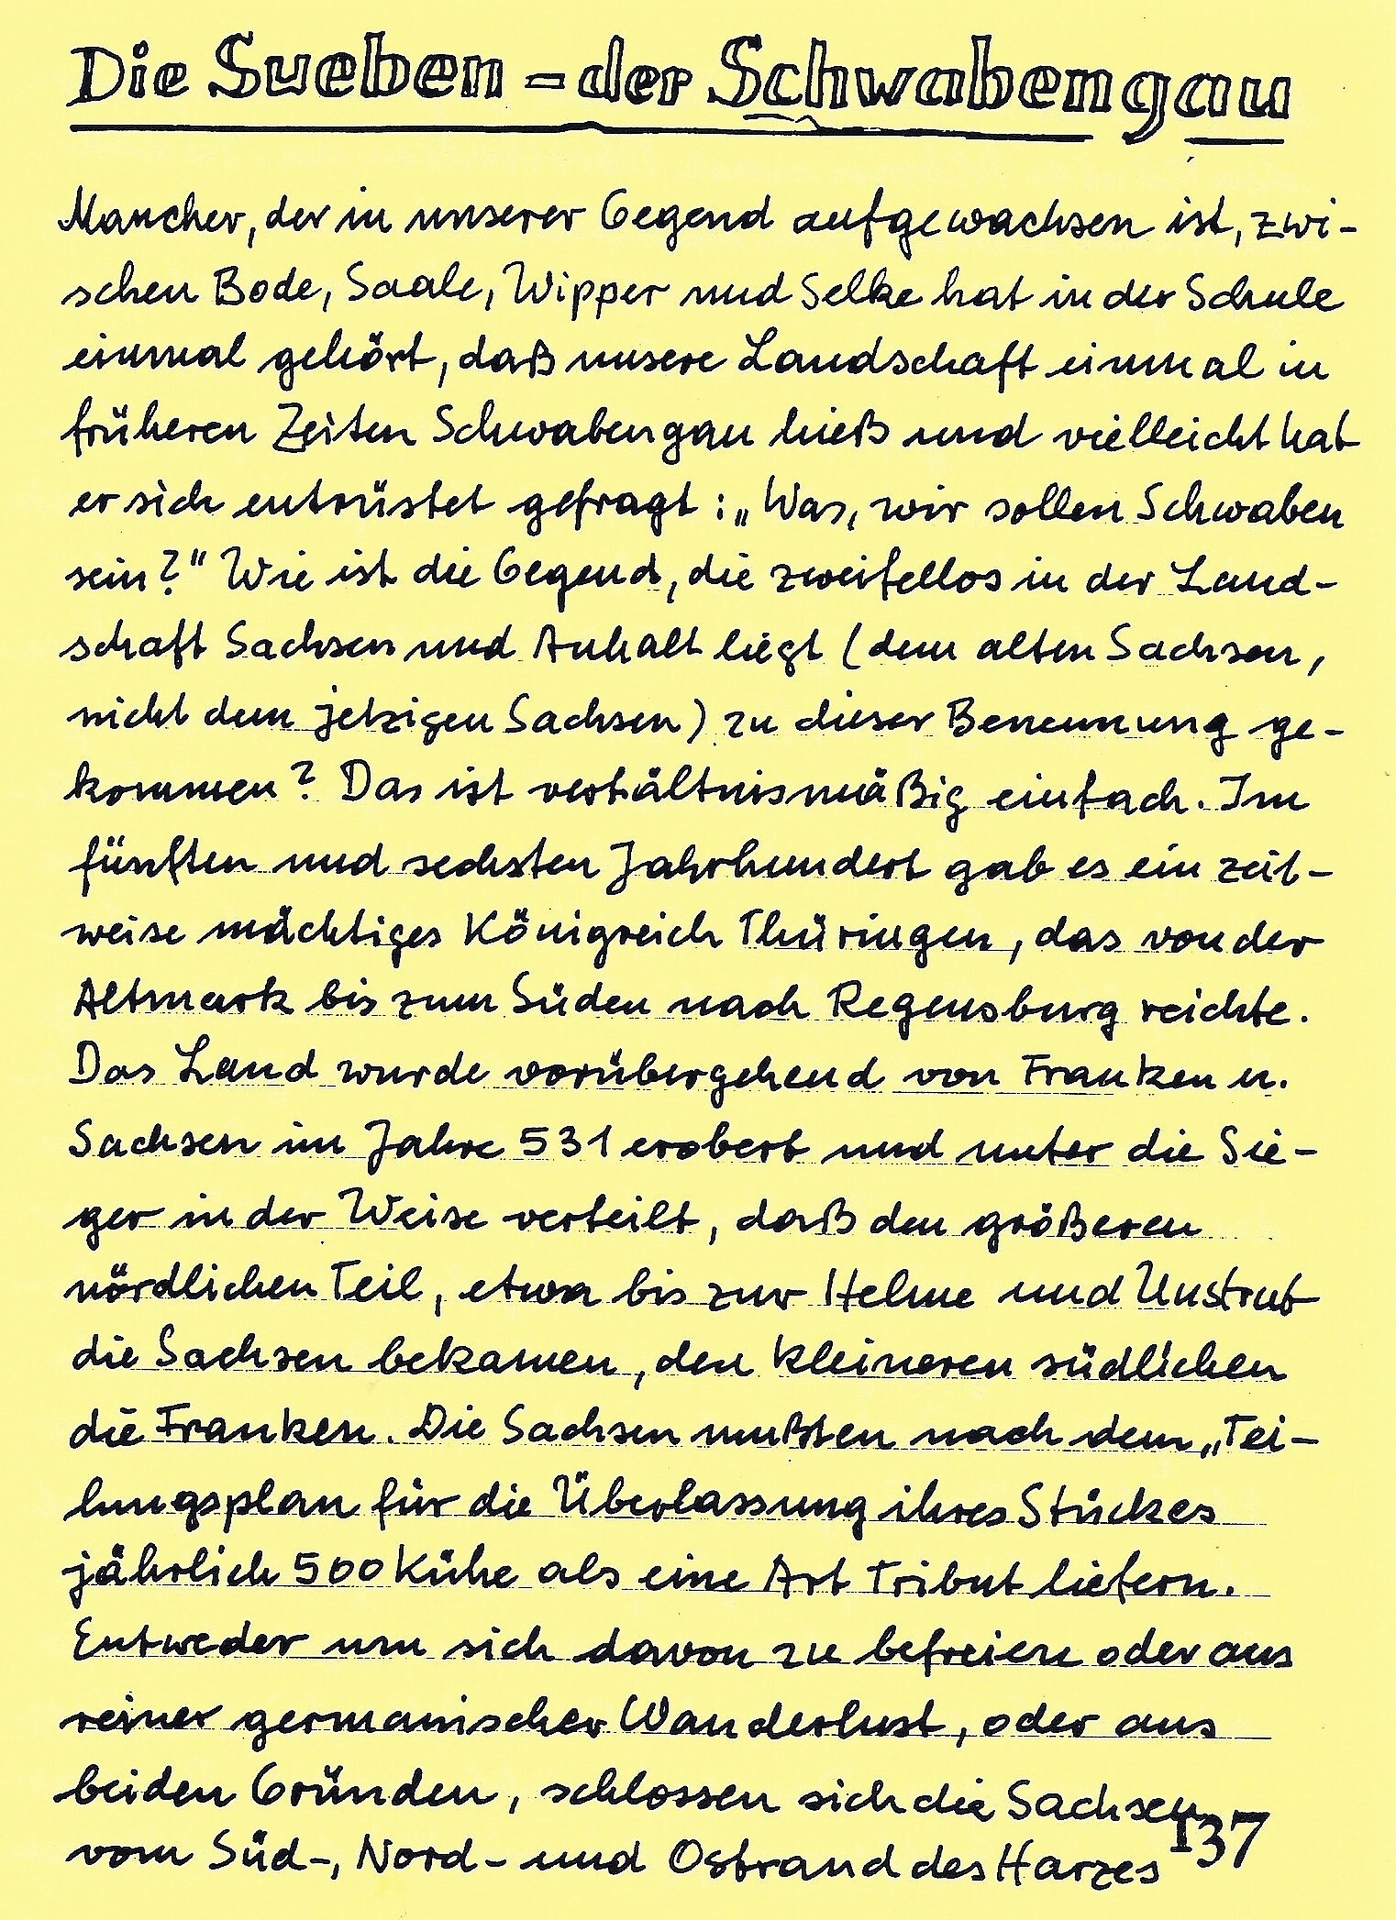 Die Sueben - der Schwabengau
Mancher, der in unserer Gegend aufgewachsen ist, zwi-
schen Bode, Saale, Wipper und Selke hat in der Schule
einmal gehört, daß unsere Landschaft einmal in
früheren Zeiten Schwabengau hieß und vielleicht hat
er sich entrüstet gefragt: „Was, wir sollen Schwaben
sein?" Wie ist die Gegend, die zweifellos in der Land-
schaft Sachsen und Anhalt liegt (dem alten Sachsen,
nicht dem jetzigen Sachsen) zu dieser Benennung ge-
kommen? Das ist verhältnismäßig einfach. Im
fünften und sechsten Jahrhundert gab es ein zeit-
weise mächtiges Königreich Thüringen, das von der
Altmark bis zum Süden nach Regensburg reichte.
Das Land wurde vorübergehend von Franken u.
Sachsen im Jahre 531 erobert und unter die Sie-
ger in der Weise verteilt, daß den größeren
nördlichen Teil, etwa bis zur Helme und Unstrut
die Sachsen bekamen, den kleineren südlichen
die Franken. Die Sachsen mußten nach dem „Tei-
lungsplan für die Überlassung ihres Stückes
jährlich 500 Kühe als eine Art Tribut liefern.
Entweder um sich davon zu befreien oder aus
reiner germanischer Wanderlust, oder aus
beiden Gründen, schlossen sich die Sachsen
vom Süd-, Nord- und Ostrand des Harzes
137